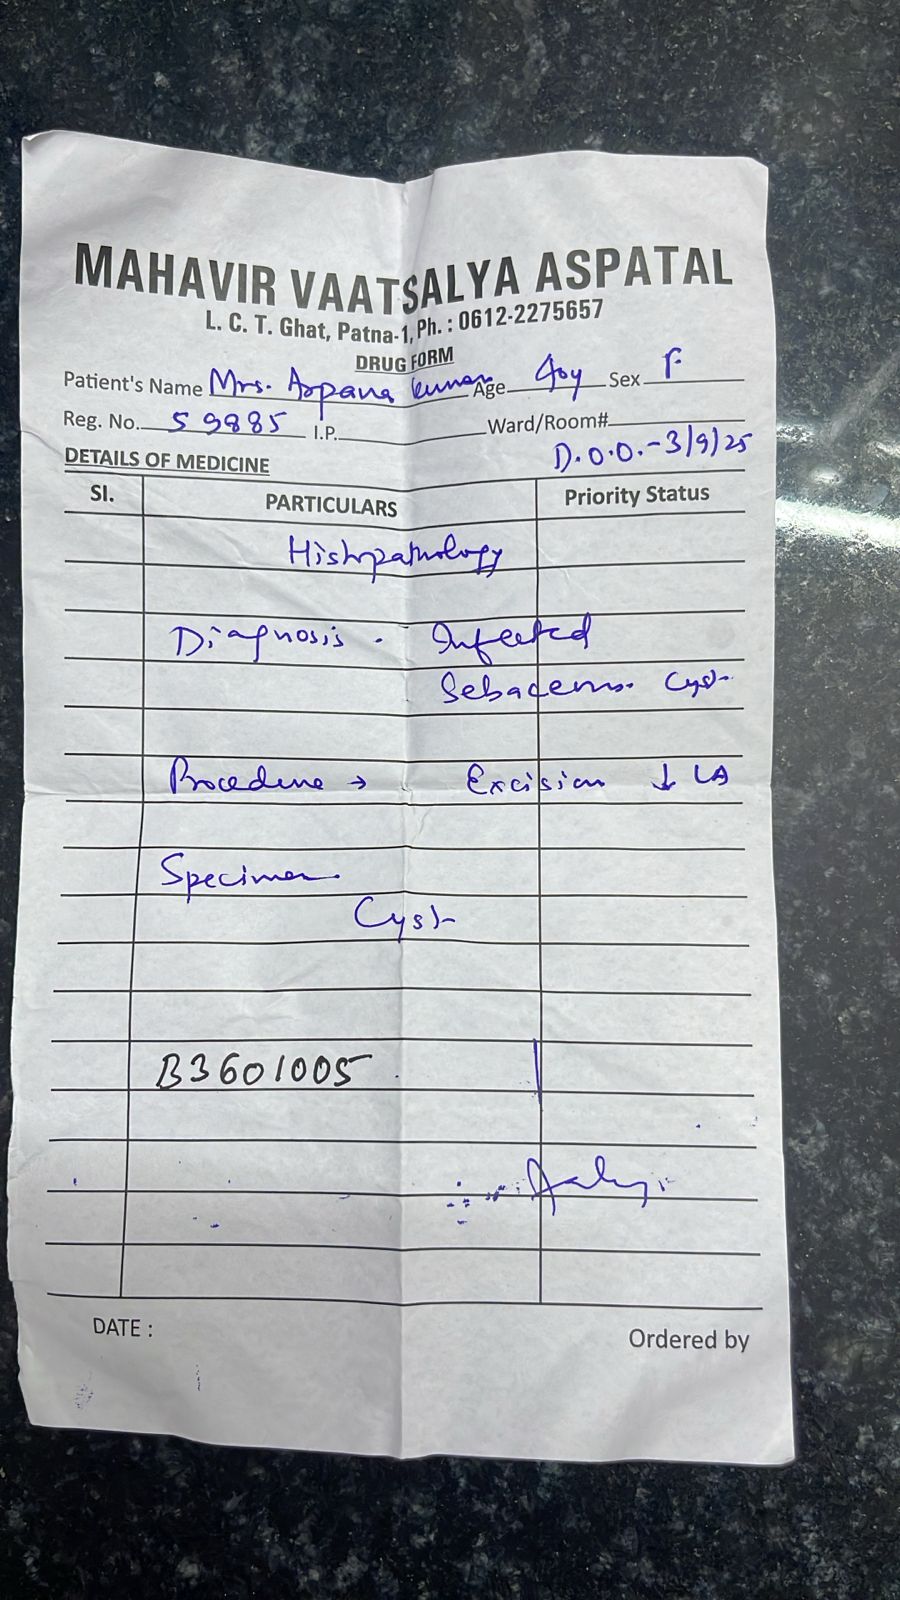 MAHAVIR VAATSALYA ASPATAL
L. C. T. Ghat, Patna-1, Ph. : 0612-2275657
DRUG FORM
Patient's Name Mrs. Arpana Kumari Age 40y Sex F
Reg. No. 59885 I.P. Ward/Room#
D.O.O. - 3/9/25
DETAILS OF MEDICINE
Sl. PARTICULARS Priority Status
Histopathology
Diagnosis - Infected
Sebaceous Cyst
Procedure → Excision ↓ LA
Specimen
Cyst
B3601005
DATE :
Ordered by